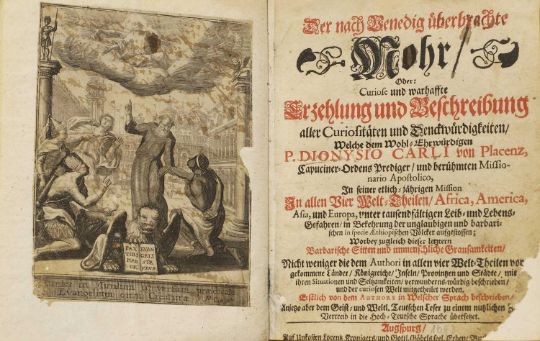 PAX TIBI
EVAN
GELI
STA
MEUS
MAR
CE
Evangelium omni Creaturæ
Der nach Venedig überbrachte
Mohr/
Oder:
Curiose und warhaffte
Erzehlung und Beschreibung
aller Curiositäten und Denckwürdigkeiten/
Welche dem Wohl-Ehrwürdigen
P. DIONYSIO CARLI von Placenz,
Capuciner-Ordens Prediger/ und berühmten Missio-
nario Apostolico,
In seiner etlich-jährigen Mission
In allen Vier Welt-Theilen/ Africa, America,
Asia, und Europa, unter tausendfältigen Leib- und Lebens-
Gefahren/ in Bekehrung der unglaubigen und barbari-
schen in specie Æthiopischen Völcker aufgestossen;
Worbey zugleich dieser letztern
Barbarische Sitten und unmenschliche Grausamkeiten/
Nicht weniger die dem Authori in allen vier Welt-Theilen vor-
gekommene Länder/ Königreiche/ Inseln/ Provinzen und Städte/ mit
ihren Situationen und Seltzamkeiten/ verwunderns-würdig beschrieben/
und der curiosen Welt mitgetheilet werden.
Erstlich von dem AUTHORE in Welscher Sprach beschrieben/
Anjetzo aber dem Geist- und Weltl. Teutschen Leser zu einem nutzlichen
Vertreib in die Hoch-Teutsche Sprache übersetzet.
Augspurg/